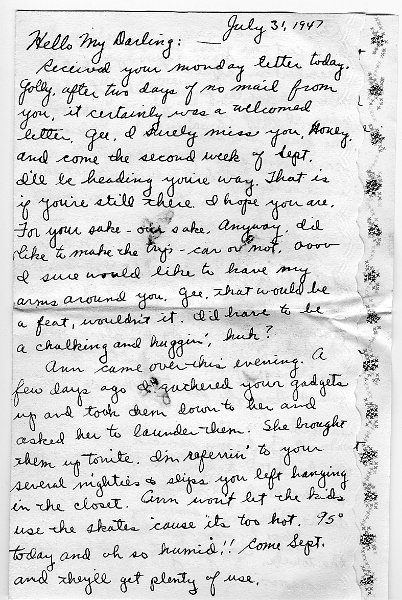 July 31, 1947
Hello My Darling: —
Received your monday letter today.
Golly, after two days of no mail from
you, it certainly was a welcomed
letter. Gee, I surely miss you, Honey,
and come the second week of Sept.
I'll be heading you're way. That is
if you're still there. I hope you are.
For your sake - our sake. Anyway, I'd
like to make the trip - car or not. oooo
I sure would like to have my
arms around you. Gee, that would be
a feat, wouldn't it. I'd have to be
a chalking and huggin', huh?
Ann came over this evening. A
few days ago I gathered your gadgets
up and took them down to her and
asked her to launder them. She brought
them up tonite. I'm referrin' to your
several nighties & slips you left hanging
in the closet. Ann won't let the kids
use the skates 'cause it's too hot. 95°
today and oh so humid!! Come Sept.
and they'll get plenty of use.